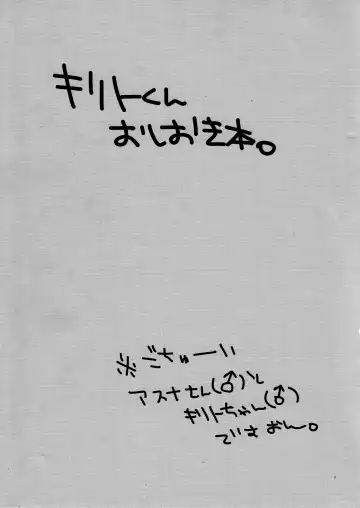 キリトくん
おしおき本。
※ごちゅーい
アスナさん(♂)と
キリトちゃん(♂)
ですおん。